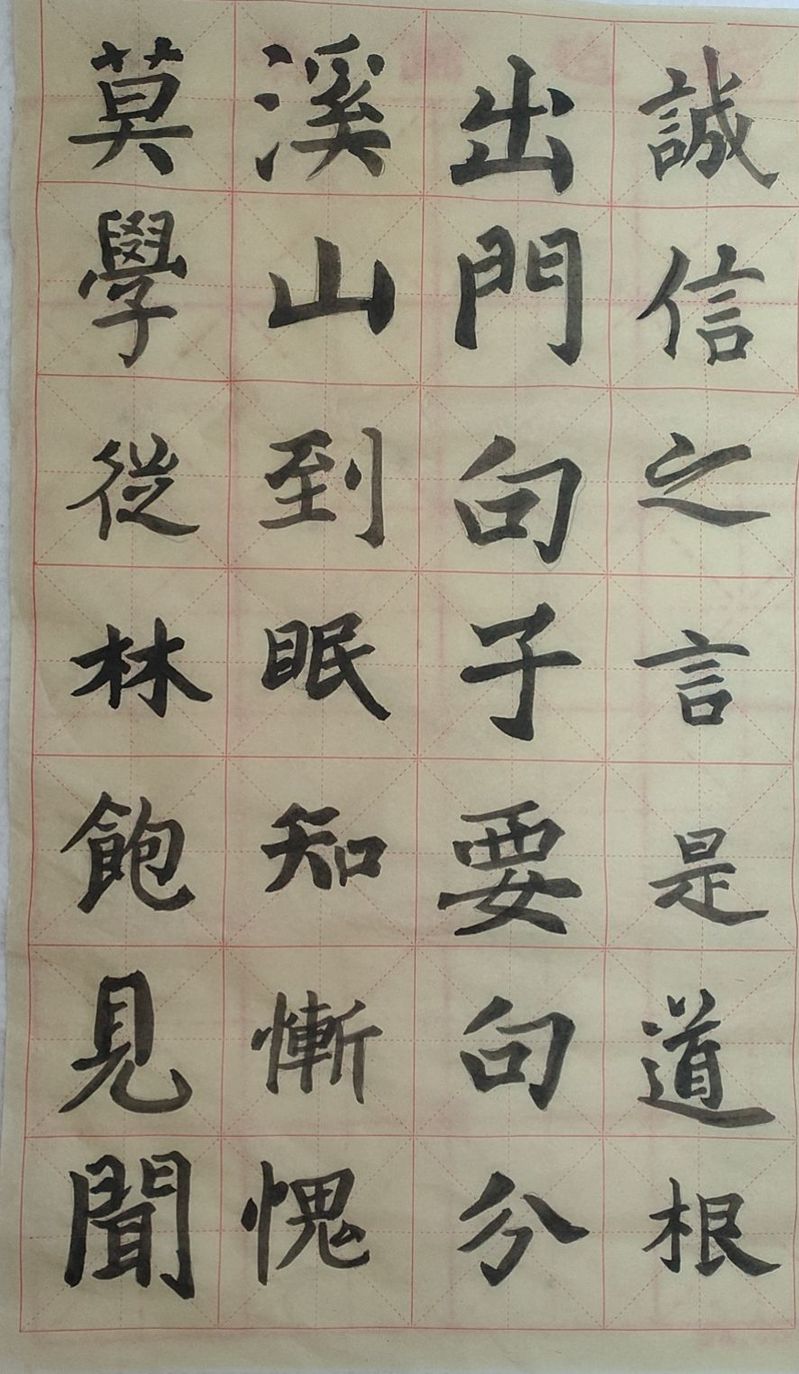 誠信之言是道根
出門句子要句分
溪山到眠知慚愧
莫學從林飽見聞